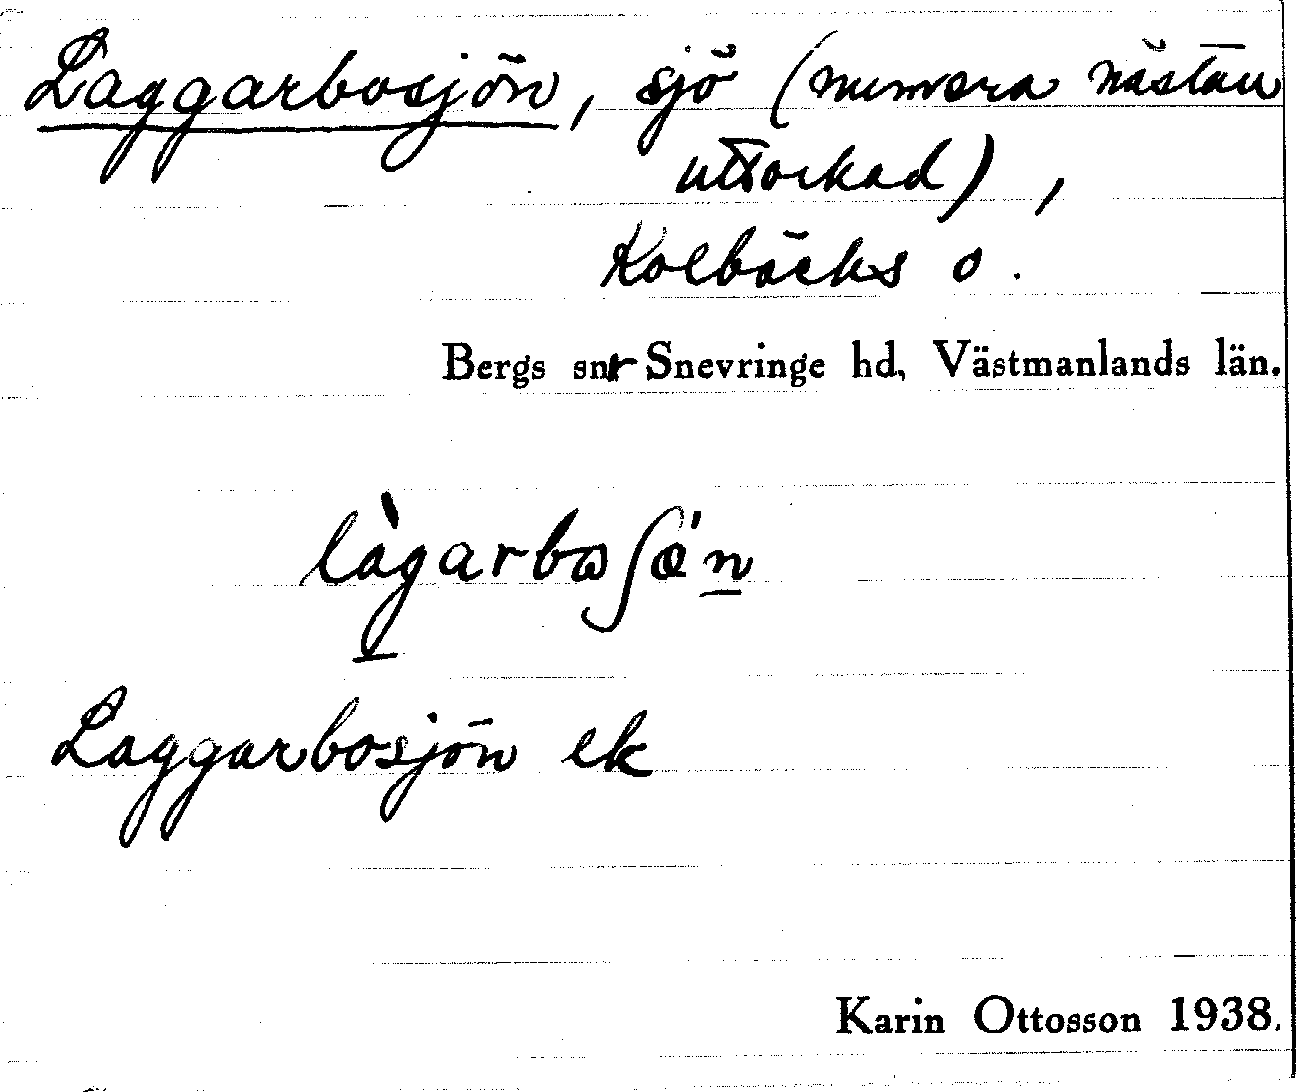 Laggarbosjön, sjö (numera nästan
uttorkad),
Kolbäcks o.
Bergs snr Snevringe hd, Västmanlands län.
làgarbωʃœ'n
Laggarbosjön ek
Karin Ottosson 1938.